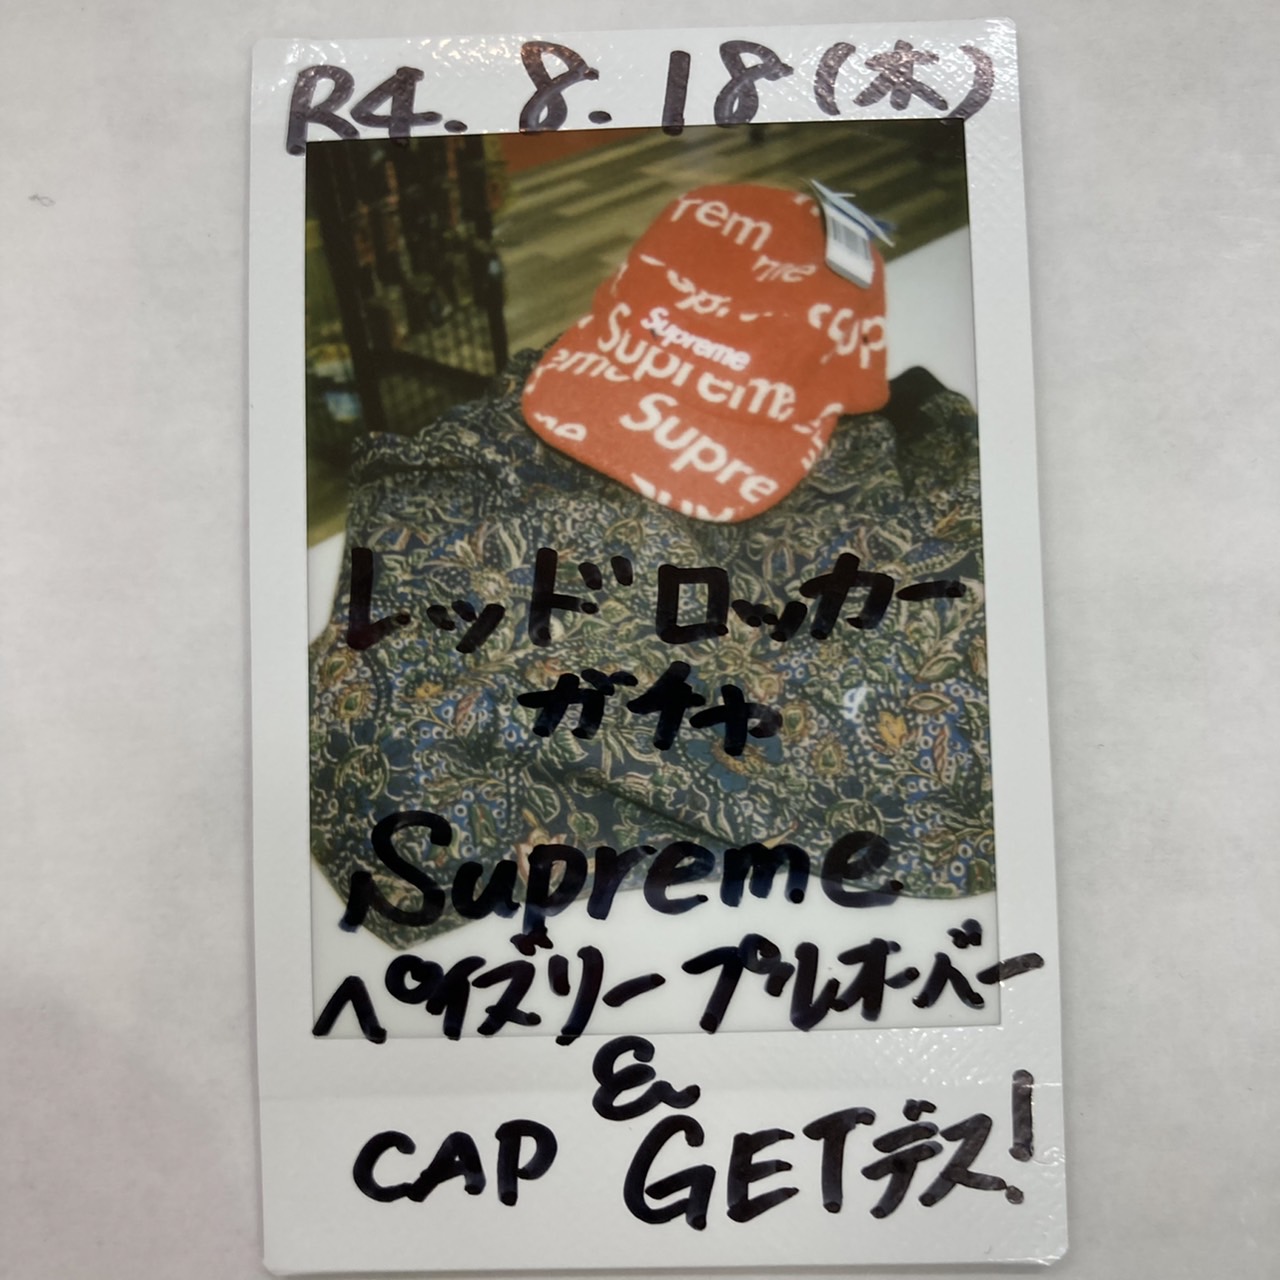 R4.8.18(木)
rem
me
Supreme
Supreme
eme
Supre
me
レッドロッカー
ガチャ
Supreme
ペイズリープルオーバー
&
CAP GETデス!